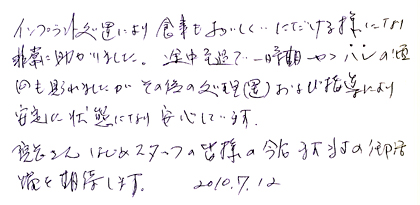 インプラント処置により食事もおいしくいただける様になり
非常に助かりました。途中経過で一時期
も見られましたがその後の処理(置)および指導により
安定した状態になり安心しています。
院長さんはじめスタッフの皆様の今后ますますの御活
躍を期待します。 2010.7.12